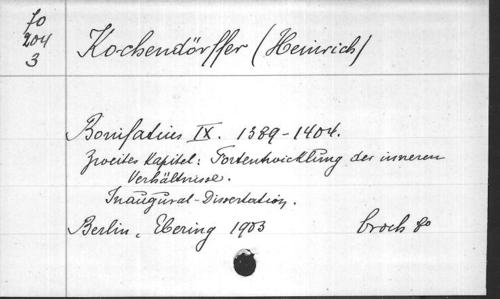 fo
204
3
Kochendörffer (Heinrich)
Bonifatius IX. 1389-1404.
Zweites Kapitel: Fortentwicklung der inneren
Verhältnisse.
Inaugural-Dissertation.
Berlin, Ebering 1903
broch 8o